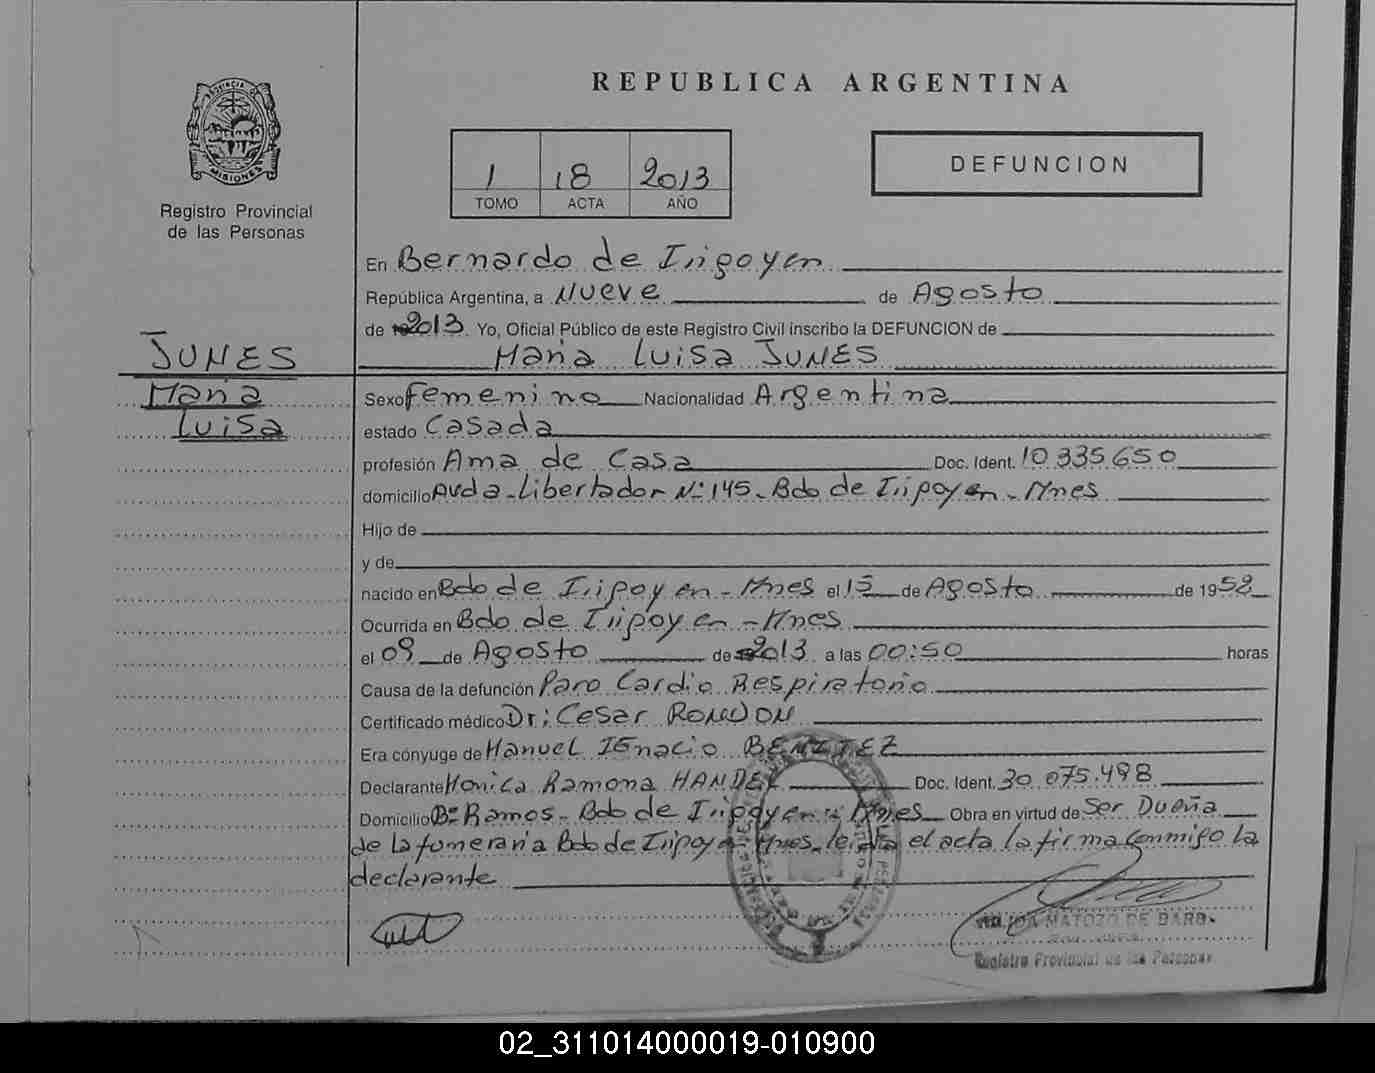 REPUBLICA ARGENTINA
PROVINCIA DE
MISIONES
Registro Provincial
de las Personas
1 18 2013
TOMO ACTA AÑO
DEFUNCION
En Bernardo de Irigoyen
República Argentina, a Nueve de Agosto
de 2013 Yo, Oficial Público de este Registro Civil inscribo la DEFUNCION de
JUNES
Maria Luisa JUNES
Maria
Luisa
Sexo Femenino Nacionalidad Argentina
estado Casada
profesión Ama de Casa Doc. Ident. 10.335.650
domicilio Avda. Libertador Nº 145. Bdo de Irigoyen - Mnes
Hijo de
y de
nacido en Bdo de Irigoyen - Mnes el 15 de Agosto de 1952
Ocurrida en Bdo de Irigoyen - Mnes
el 09 de Agosto de 2013 a las 00:50 horas
Causa de la defunción Paro Cardio Respiratorio
Certificado médico Dr: Cesar RONDON
Era cónyuge de Manuel IGnacio BENITEZ
Declarante Monica Ramona HANDEL Doc. Ident. 30.075.498
Domicilio Bº Ramos - Bdo de Irigoyen - Mnes Obra en virtud de Ser Dueña
de La funeraria Bdo de Irigoyen Mnes. leida el acta la firma Conmigo la
declarante
MATOZO DE BARB
Registro Provincial de las Personas
02_311014000019-010900